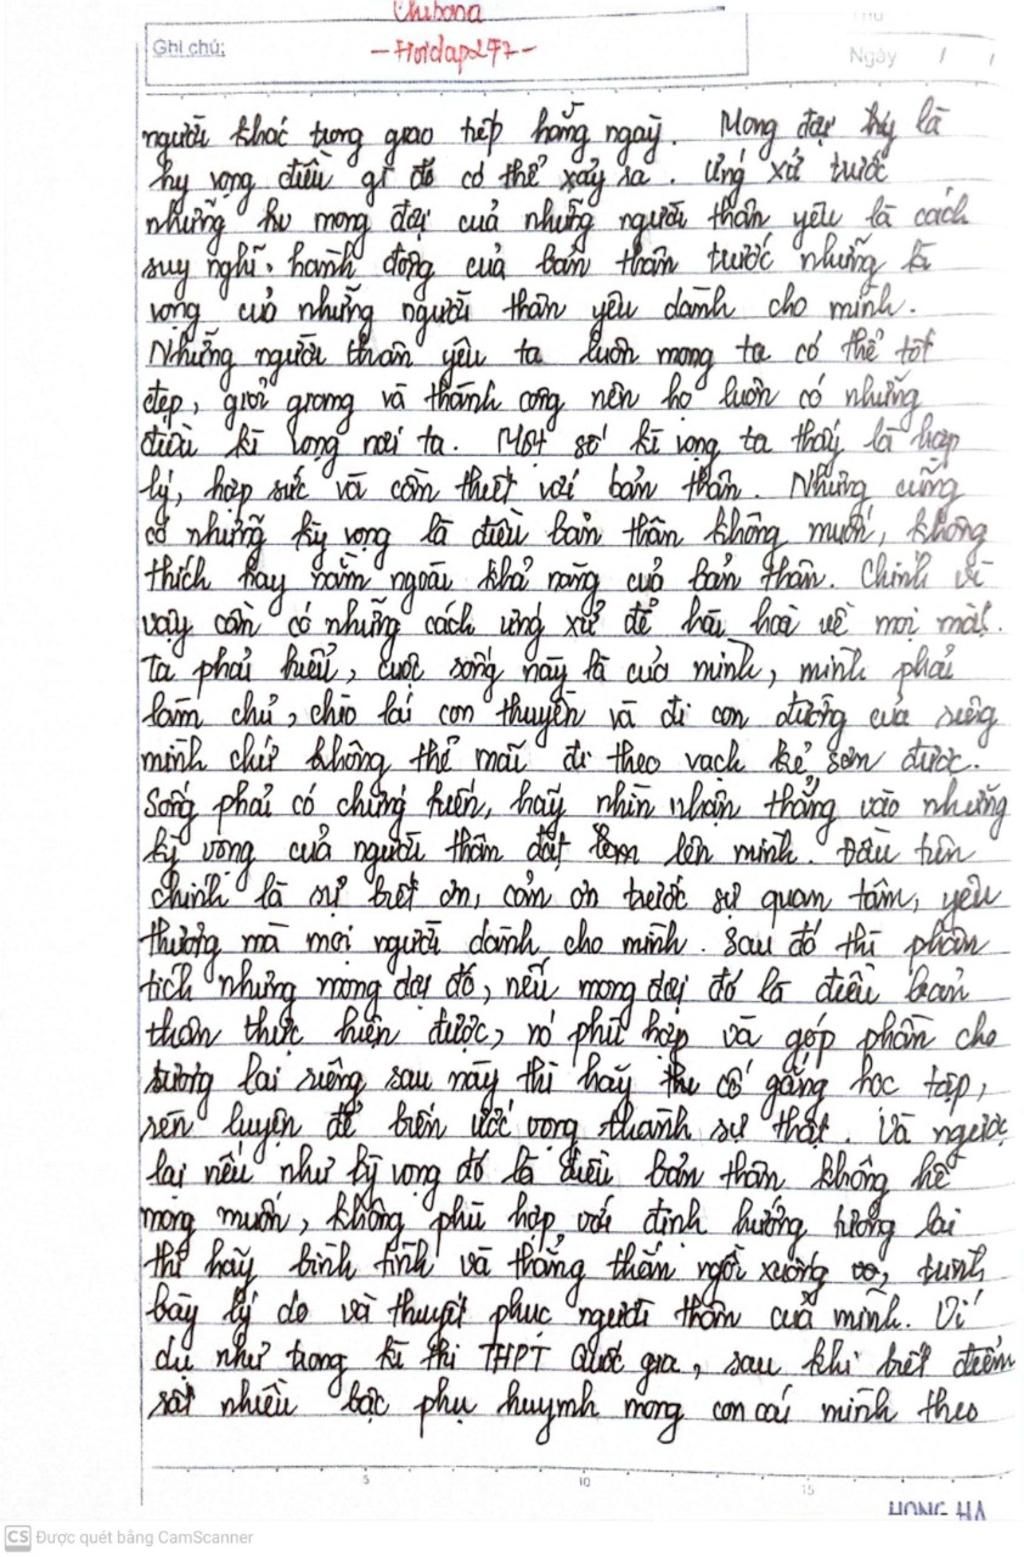 Chibana
Ghi chú:
-Hoidap247-
Thứ
Ngày / /
người khác trong giao tiếp hằng ngày. Mong đợi hy là
hy vọng điều gì đó có thể xảy ra. Ứng xử trước
những hu mong đợi của những người thân yêu là cách
suy nghĩ, hành động của bản thân trước những kì
vọng của những người thân yêu dành cho mình.
Những người thân yêu ta luôn mong ta có thể tốt
đẹp, giỏi giang và thành công nên họ luôn có những
điều kì vọng nơi ta. Một số kì vọng ta thấy là hợp
lý, hợp sức và cần thiết với bản thân. Nhưng cũng
có những kỳ vọng là điều bản thân không muốn, không
thích hay nằm ngoài khả năng của bản thân. Chính vì
vậy cần có những cách ứng xử để hài hoà về mọi mặt.
Ta phải hiểu, cuộc sống này là của mình, mình phải
làm chủ, chèo lái con thuyền và đi con đường của riêng
mình chứ không thể mãi đi theo vạch kẻ sơn được.
Sống phải có chứng kiến, hãy nhìn nhận thẳng vào những
kỳ vọng của người thân đặt lên mình. Đầu tiên
chính là sự biết ơn, cảm ơn trước sự quan tâm, yêu
thương mà mọi người dành cho mình. Sau đó thì phân
tích những mong đợi đó, nếu mong đợi đó là điều bản
thân thực hiện được, nó phù hợp và góp phần cho
tương lai riêng sau này thì hãy cố gắng học tập,
rèn luyện để biến ước vọng thành sự thật. Và ngược
lại nếu như kỳ vọng đó là điều bản thân không hề
mong muốn, không phù hợp với định hướng tương lai
thì hãy bình tĩnh và thẳng thắn ngồi xuống, trình
bày lý do và thuyết phục người thân của mình. Ví
dụ như trong kì thi THPT Quốc gia, sau khi biết điểm
rất nhiều bậc phụ huynh mong con cái mình theo
5 10 15
HONG HA
CS Được quét bằng CamScanner